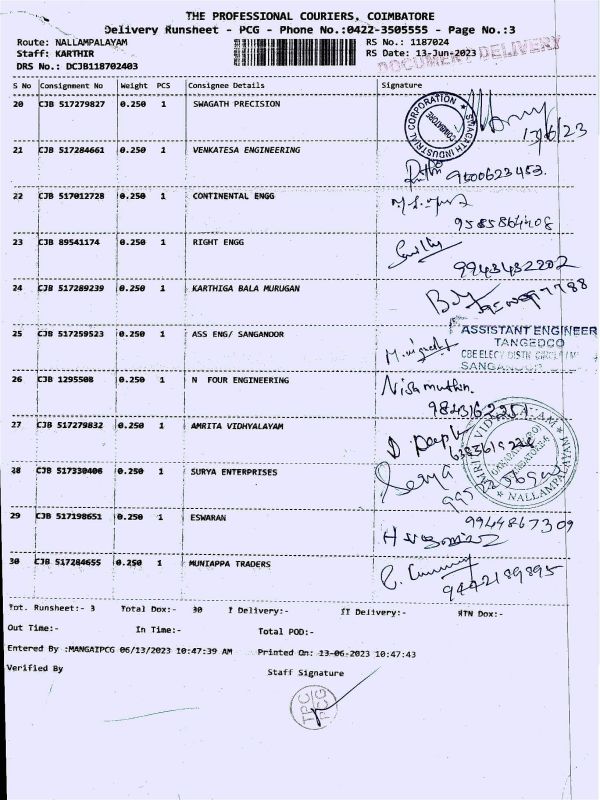 THE PROFESSIONAL COURIERS, COIMBATORE
Delivery Runsheet - PCG - Phone No.:0422-3505555 - Page No.:3
Route: NALLAMPALAYAM RS No.: 1187024
Staff: KARTHIR RS Date: 13-Jun-2023
DRS No.: DCJB118702403
DOCUMENT DELIVERY
S No Consignment No Weight PCS Consignee Details Signature
20 CJB 517279827 0.250 1 SWAGATH PRECISION
SWAGATH INDUSTRIAL CORPORATION ★ COIMBATORE
21 CJB 517284661 0.250 1 VENKATESA ENGINEERING
9600623453.
22 CJB 517012728 0.250 1 CONTINENTAL ENGG
9585864408
23 CJB 89541174 0.250 1 RIGHT ENGG
9943432202
24 CJB 517289239 0.250 1 KARTHIGA BALA MURUGAN
25 CJB 517259523 0.250 1 ASS ENG/ SANGANOOR
ASSISTANT ENGINEER
TANGEDCO
CBE ELECY DISTN CIRCLE
SANGANOOR
26 CJB 1295508 0.250 1 N FOUR ENGINEERING
9843162251
27 CJB 517279832 0.250 1 AMRITA VIDHYALAYAM
D. Deepk
★ NALLAMPALAYAM ★
28 CJB 517330406 0.250 1 SURYA ENTERPRISES
Surya
29 CJB 517198651 0.250 1 ESWARAN
9944867309
30 CJB 517284655 0.250 1 MUNIAPPA TRADERS
9442189895
Tot. Runsheet:- 3 Total Dox:- 30 I Delivery:- II Delivery:- RTN Dox:-
Out Time:- In Time:- Total POD:-
Entered By :MANGAIPCG 06/13/2023 10:47:39 AM Printed On: 13-06-2023 10:47:43
Verified By Staff Signature
TPC
PCG